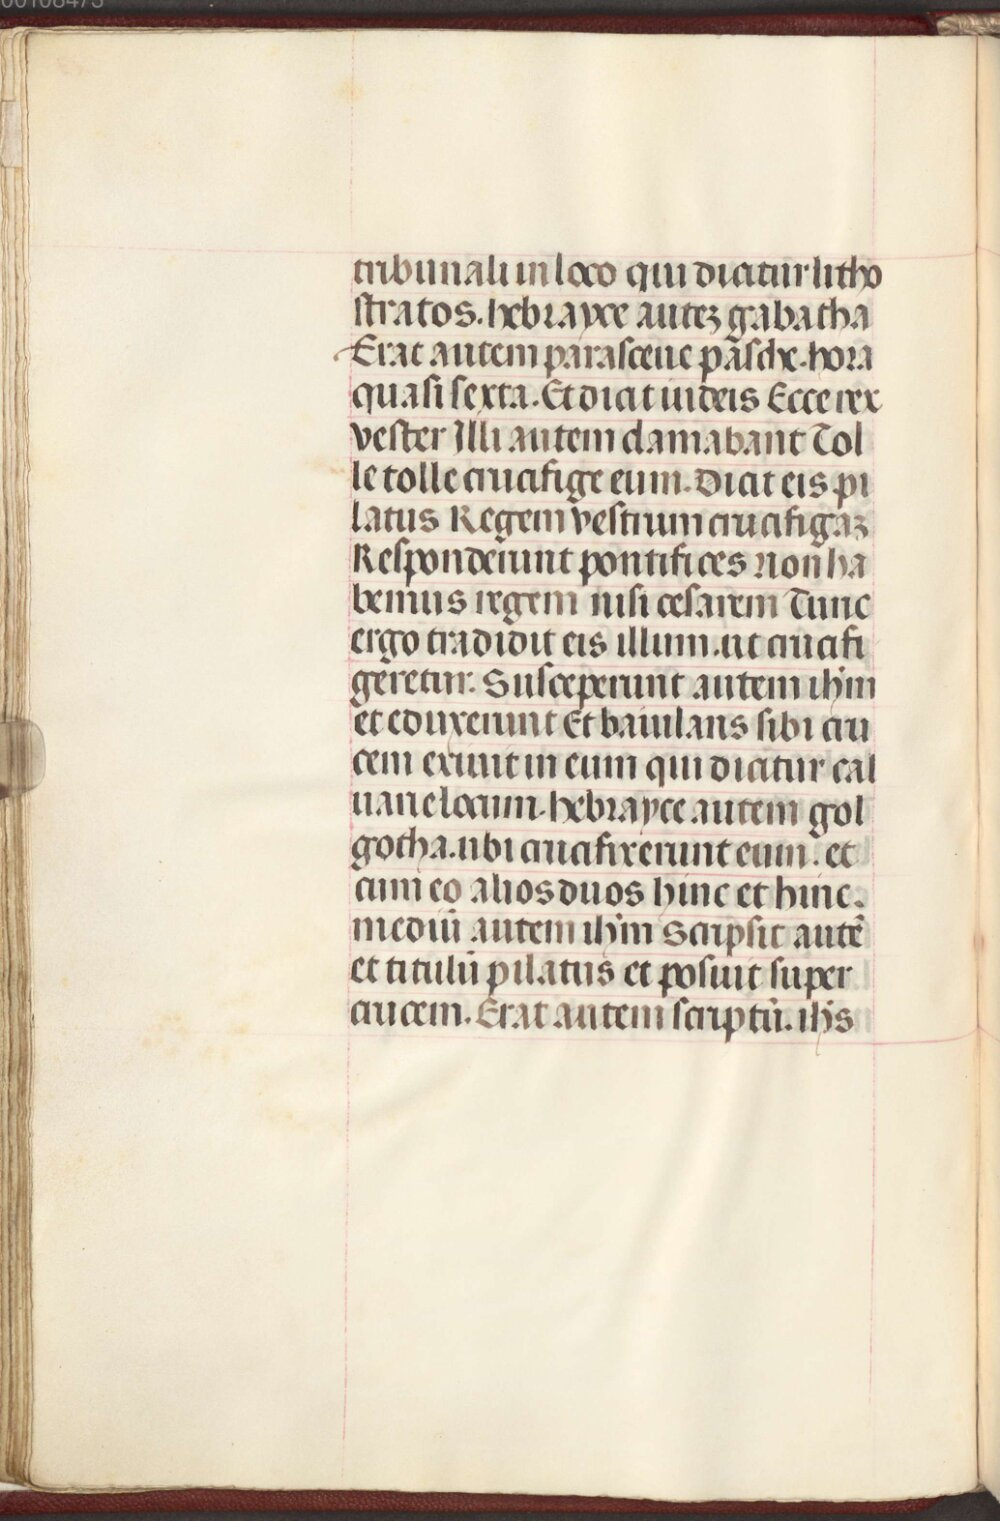 00108473
tribunali in loco qui dicitur litho
stratos. hebrayce autez gabatha
Erat autem parasceue pãsche. hora
quasi sexta. Et dicit iudeis Ecce rex
vester Illi autem clamabant Tol
le tolle crucifige eum. Dicit eis pi
latus Regem vestrum crucifigaz
Responderunt pontifices Non ha
bemus regem nisi cesarem Tunc
ergo tradidit eis illum. ut crucifi
geretur. Susceperunt autem ihm
et eduxerunt Et baiulans sibi cru
cem exiuit in eum qui dicitur cal
uarie locum. hebrayce autem gol
gotha. ubi crucifixerunt eum. et
cum eo alios duos hinc et hinc.
mediũ autem ihm Scripsit autẽ
et titulũ pilatus et posuit super
crucem. Erat autem scriptũ. ihs